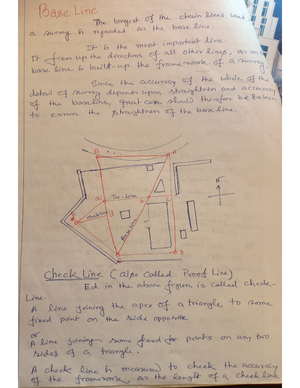 Base Line
The longest of the chain lines used
a survey is regarded as the base line.
It is the most important line.
It fixes up the directions of all other lines, as on
base line is built-up the framework of a survey
Since the accuracy of the whole of the
detail of survey depends upon straightness and accuracy
of the baseline, great care should therefore be taken
to ensure the straightness of the base line.
D
A
a
Tie-Line
b
E
check line
Base Line
d
C
B
N
Check Line (also Called Proof Line)
Ed in the above figure is called check-
Line.
A line joining the apex of a triangle to some
fixed point on the side opposite
or
A line joining some fixed points on any two
sides of a triangle.
A check line is measured to check the accuracy
of the framework, as the length of a check line